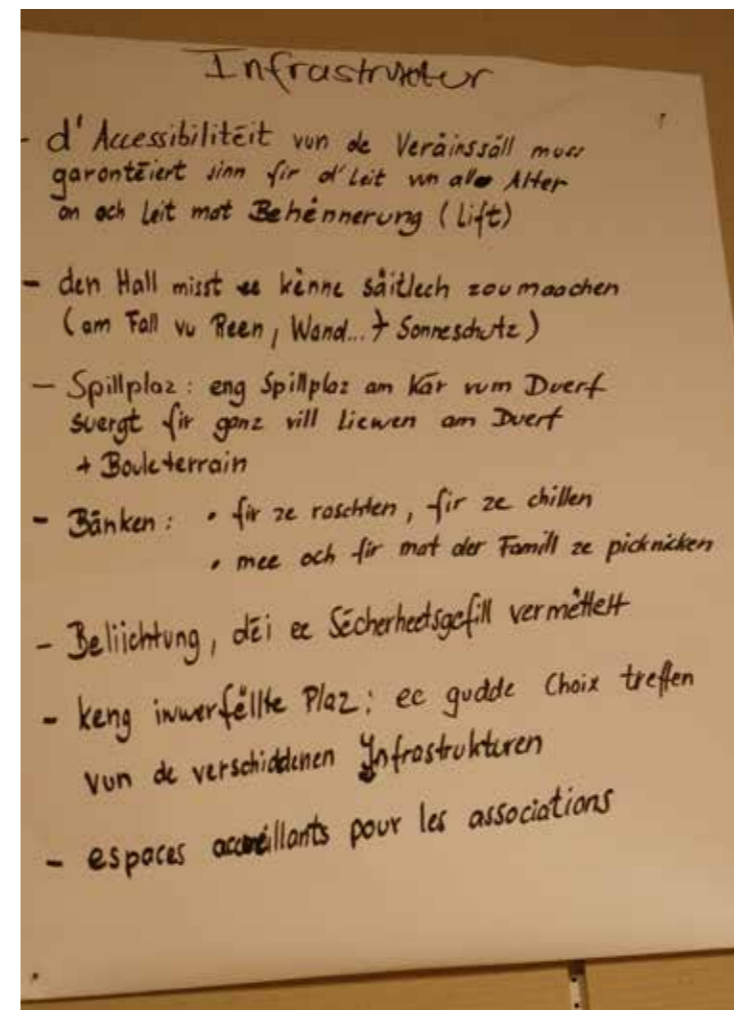 Infrastruktur
- d'Accessibilitéit vun de Veräinssäll muss
garantéiert sinn fir d'Leit vun alle Alter
an och Leit mat Behënnerung (Lift)
- den Hall misst ee kënne säitlech zoumaachen
(am Fall vu Reen, Wand... + Sonneschutz)
- Spillplaz: eng Spillplaz am Kär vum Duerf
suergt fir ganz vill Liewen am Duerf
+ Bouleterrain
- Bänken: • fir ze raschten, fir ze chillen
• mee och fir mat der Famill ze picknicken
- Beliichtung, déi ee Sécherheetsgefill vermëttelt
- keng iwwerfëllte Plaz: ee gudde Choix treffen
vun de verschiddenen Infrastrukturen
- espaces accueillants pour les associations